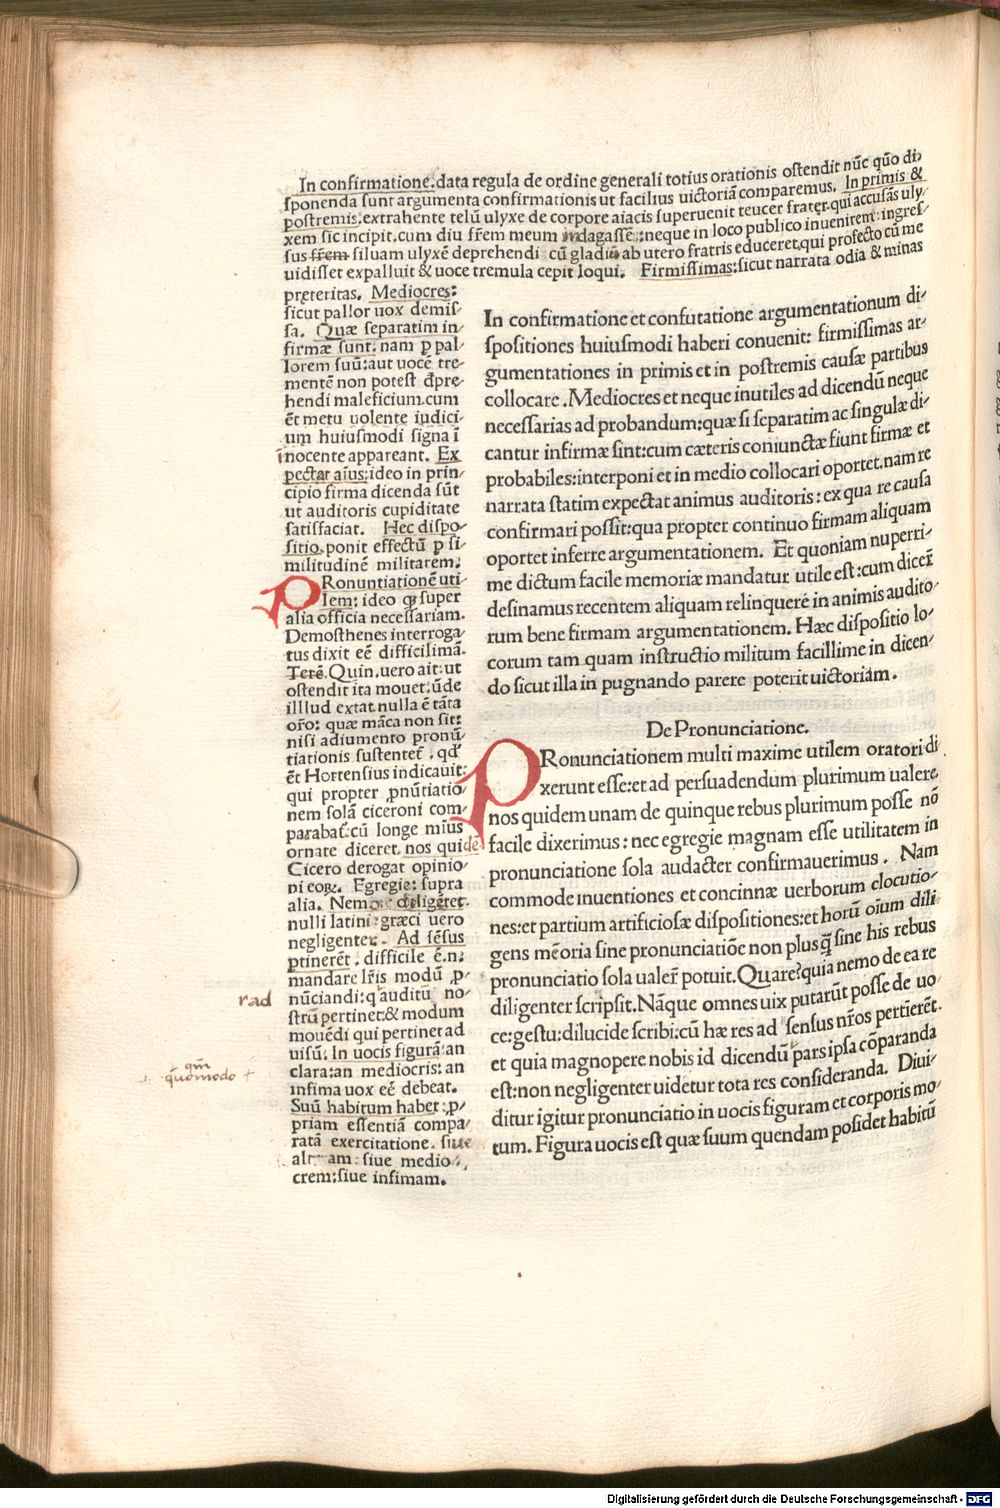 In confirmatione.data regula de ordine generali totius orationis ostendit nūc quo di⸗
sponenda sunt argumenta confirmationis ut facilius uictoriā comparemus. In primis &
postremis:extrahente telū ulyxe de corpore aiacis superuenit teucer frater.qui accusās uly⸗
xem sic incipit.cum diu frēm meum indagassē:neque in loco publico inuenirem:ingres⸗
sus frēm siluam ulyxē deprehendi cū gladiū ab utero fratris educeret.qui profecto cū me
uidisset expalluit & uoce tremula cepit loqui. Firmissimas:sicut narrata odia & minas
pręteritas. Mediocres:
sicut pallor uox demis⸗
sa. Quæ separatim in⸗
firmæ sunt. nam ꝑ pal⸗
lorem suū:aut uocē tre⸗
mentē non potest dꝑre⸗
hendi maleficium.cum
ēt metu uolente iudici⸗
um huiusmodi signa ī
īnocente appareant. Ex
pectat aīus:ideo in prin⸗
cipio firma dicenda sūt
ut auditoris cupiditate
satisfaciat. Hec dispo⸗
sitio. ponit effectū ꝑ si⸗
militudinē militarem:
PRonuntiationē uti⸗
lem: ideo ꝙ super
alia officia necessariam.
Demosthenes interroga⸗
tus dixit eē difficilimā.
Terē. Quin.uero ait:ut
ostendit ita mouet:ūde
illlud extat nulla ē tāta
oro: quæ māca non sit:
nisi adiumento pronū⸗
tiationis sustentet . qd
ēt Hortensius indicauit:
qui propter pnūtiatio⸗
nem solā ciceroni com⸗
parabat.cū longe mius
ornate diceret. nos quidē
Cicero derogat opinio⸗
ni eoꝝ. Egregie: supra
alia. Nemo: diligēret.
nulli latini:græci uero
negligenter. Ad sēsus
ptinerēt . difficile ē.n:
mandare lr̄is modū p⸗
nūciandi:q auditū no⸗
strū pertinet:& modum
mouēdi qui pertinet ad
uisū. In uocis figurā:an
clara:an mediocris:an
infima uox eē debeat.
Suū habitum habet:p⸗
priam essentiā compa⸗
ratā exercitatione. siue
altam: siue medio⸗
crem:siue infimam.
rad
qm
quomodo +
In confirmatione et confutatione argumentationum di⸗
spositiones huiusmodi haberi conuenit: firmissimas ar⸗
gumentationes in primis et in postremis causæ partibus
collocare . Mediocres et neque inutiles ad dicendū neque
necessarias ad probandum:quæ si separatim ac singulæ di⸗
cantur infirmæ sint:cum cæteris coniunctæ fiunt firmæ et
probabiles:interponi et in medio collocari oportet.nam re
narrata statim expectat animus auditoris : ex qua re causa
confirmari possit:qua propter continuo firmam aliquam
oportet inferre argumentationem. Et quoniam nuperri⸗
me dictum facile memoriæ mandatur utile est:cum dicer̄
desinamus recentem aliquam relinquere in animis audito⸗
rum bene firmam argumentationem. Hæc dispositio lo⸗
corum tam quam instructio militum facillime in dicen⸗
do sicut illa in pugnando parere poterit uictoriam .
De Pronunciatione.
PRonunciationem multi maxime utilem oratori di
xerunt esse:et ad persuadendum plurimum ualere.
nos quidem unam de quinque rebus plurimum posse nō
facile dixerimus : nec egregie magnam esse utilitatem in
pronunciatione sola audacter confirmauerimus . Nam
commode inuentiones et concinnæ uerborum elocutio⸗
nes:et partium artificiosæ dispositiones:et horū oīum dili
gens mēoria sine pronunciatiōe non plus q̄ sine his rebus
pronunciatio sola ualer̄ potuit. Quare?quia nemo de ea re
diligenter scripsit. Nāque omnes uix putarūt posse de uo⸗
ce:gestu:dilucide scribi:cū hæ res ad sensus nr̄os pertierēt.
et quia magnopere nobis id dicendū pars ipsa cōparanda
est:non negligenter uidetur tota res consideranda. Diui⸗
ditur igitur pronunciatio in uocis figuram et corporis mo⸗
tum. Figura uocis est quæ suum quendam posidet habitū
Digitalisierung gefördert durch die Deutsche Forschungsgemeinschaft - DFG